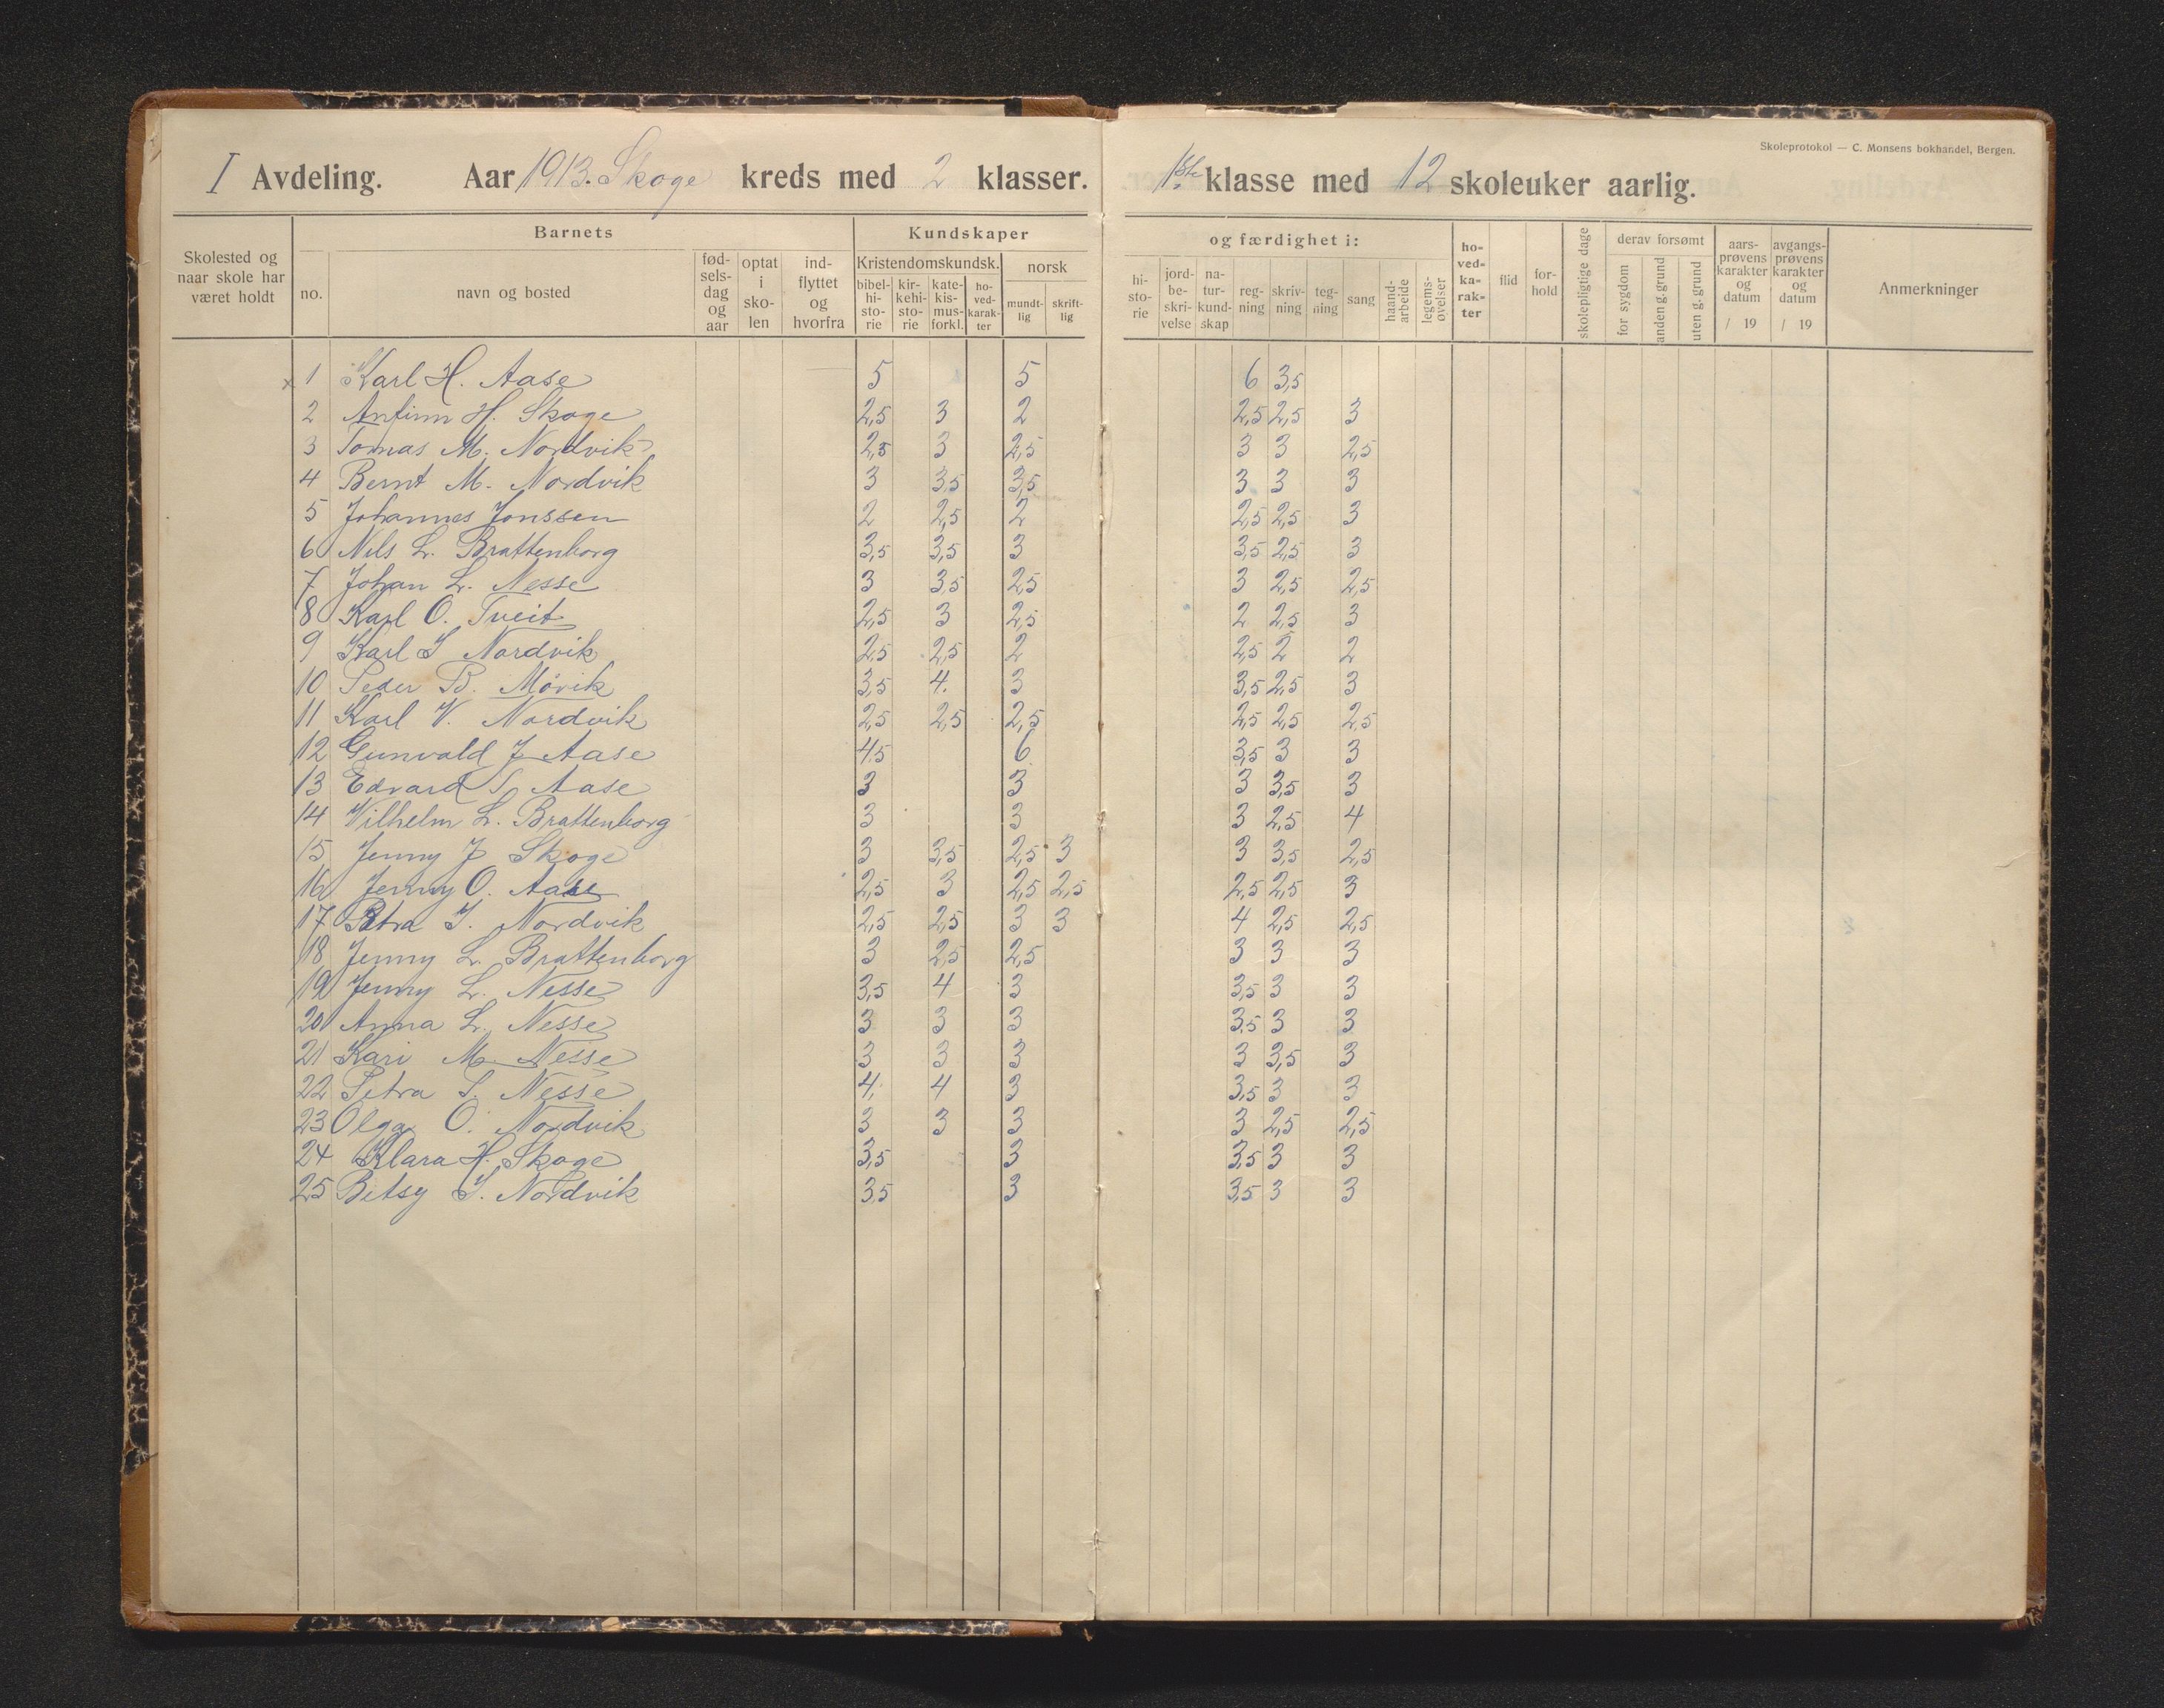 I Avdeling. Aar 1913. Skoge kreds med 2 klasser. 1ste klasse med 12 skoleuker aarlig.
Skoleprotokol — C. Monsens bokhandel, Bergen.
Skolested og naar skole har været holdt
Barnets
no. navn og bosted fød-sels-dag og aar optat i sko-len ind-flyttet og hvorfra
Kundskaper og færdighet i:
Kristendomskundsk. norsk
bibel-hi-sto-rie kir-kehi-sto-rie kate-kis-mus-forkl. ho-ved-karak-ter mundt-lig skrift-lig
hi-sto-rie jord-be-skri-velse na-tur-kund-skap reg-ning skriv-ning teg-ning sang haand-arbeide legems-øvelser
ho-ved-ka-rak-ter flid for-hold skolepligtige dage
derav forsømt
for sygdom anden g. grund uten g. grund
aars-prøvens karakter og datum / 19
avgangs-prøvens karakter og datum / 19
Anmerkninger
x 1 Karl H. Aase 5 5 6 3,5
2 Anfinn H. Skoge 2,5 3 2 2,5 2,5 3
3 Tomas M. Nordvik 2,5 3 2,5 3 3 2,5
4 Bernt M. Nordvik 3 3,5 3,5 3 3 3
5 Johannes Jonssen 2 2,5 2 2,5 2,5 3
6 Nils L. Brattenborg 3,5 3,5 3 3,5 2,5 3
7 Johan L. Nesse 3 3,5 2,5 3 2,5 2,5
8 Karl O. Tveit 2,5 3 2,5 2 2,5 3
9 Karl I Nordvik 2,5 2,5 2 2,5 2 2
10 Peder B. Mövik 3,5 4. 3 3,5 2,5 3
11 Karl V. Nordvik 2,5 2,5 2,5 2,5 2,5 2,5
12 Gunvald J Aase 4,5 6 3,5 3 3
13 Edvard S Aase 3 3 3 3,5 3
14 Vilhelm L. Brattenborg 3 3 3 2,5 4
15 Jenny J Skoge 3 3,5 2,5 3 3 3,5 2,5
16 Jenny O. Aase 2,5 3 2,5 2,5 2,5 2,5 3
17 Petra I. Nordvik 2,5 2,5 3 3 4 2,5 2,5
18 Jenny L. Brattenborg 3 2,5 2,5 3 3 3
19 Jenny L. Nesse 3,5 4 3 3,5 3 3
20 Anna L. Nesse 3 3 3 3,5 3 3
21 Kari M. Nesse 3 3 3 3 3,5 3
22 Petra S. Nesse 4, 4 3 3,5 3 3
23 Olga O. Nordvik 3 3 3 3 2,5 2,5
24 Klara H. Skoge 3,5 3 3,5 3 3
25 Betsy I. Nordvik 3,5 3 3,5 3 3